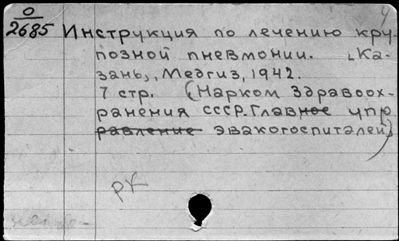 О
2685
Инструкция по лечению кру-
позной пневмонии. [Ка-
зань], Медгиз, 1942.
7 стр. (Нарком здравоох-
ранения СССР. Главное упр
равление эвакогоспиталей)
рк